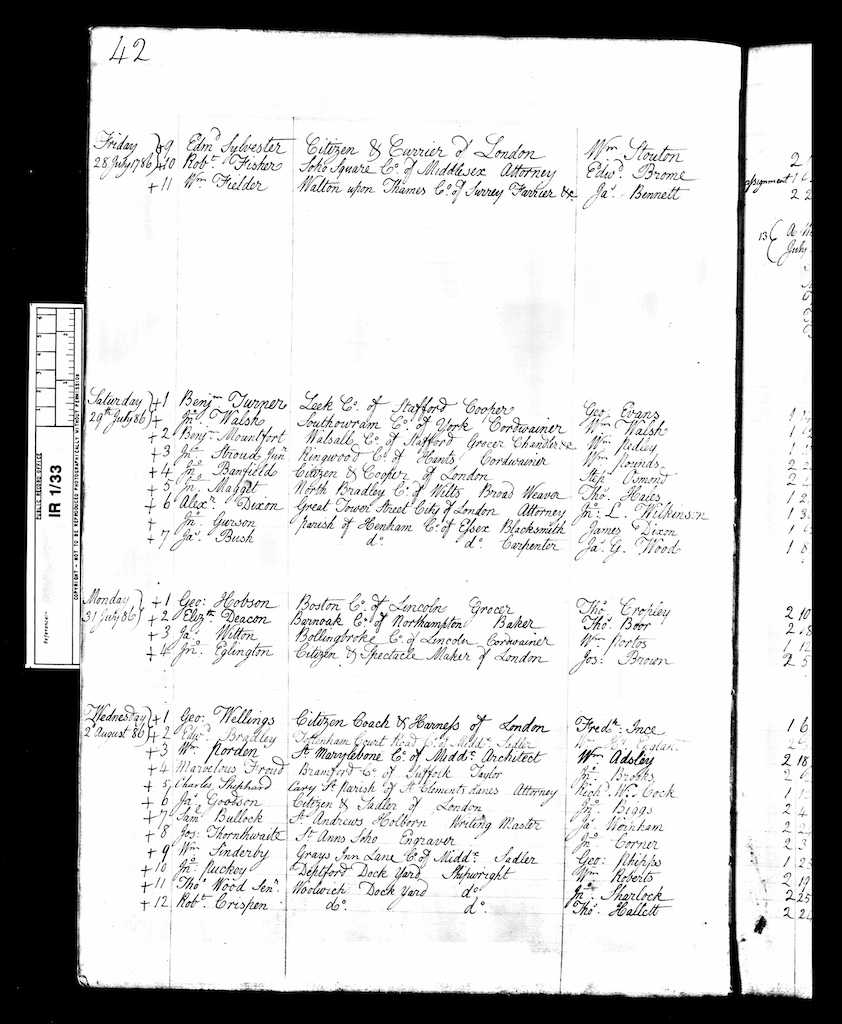 42
Friday + 9 Edmd Sylvester Citizen & Currier of London Wm Stouton
28 July 1786 + 10 Robt. Fisher Soho Square Co. of Middlesex Attorney Edwd. Brome
+ 11 Wm Fielder Walton upon Thames Co. of Surrey Farrier &c. Jas. Bennett
Saturday + 1 Benjn Turner Leek Co. of Stafford Cooper Geo. Evans
29th July 86 + Jno. Walsh Southowram Co. of York Cordwainer Wm Walsh
+ 2 Benjn Mountfort Walsall Co. of Stafford Grocer Chandler &c Wm Ridley
+ 3 Jno. Stroud Junr Ringwood Co. of Hants Cordwainer Wm Rounds
+ 4 Jno. Banfield Citizen & Cooper of London Stepn Osmond
+ 5 Jno. Maggit North Bradley Co. of Wilts Broad Weaver Thos. Haies
+ 6 Alexr. Dixon Great Tower Street City of London Attorney Jno. L. Wilkinson
+ Jno. Gurson Parish of Henham Co. of Essex Blacksmith James Dixon
+ 7 Jas. Bush do. do. Carpenter Jas. G. Wood
Monday + 1 Geo: Hobson Boston Co. of Lincoln Grocer Thos. Cropley 2 10
31 July 86 + 2 Elizth. Deacon Barnoak Co. of Northampton Baker Thos. Boor 2 18
+ 3 Jas. Witton Bollingbroke Co. of Lincoln Cordwainer Wm Portos 1 12
+ 4 Jno. Eglington Citizen & Spectacle Maker of London Jos: Brown 2 5
Wednesday + 1 Geo: Wellings Citizen Coach & Harness of London Fredk: Ince 1 6
2d August 86 + 2 Edwd. Bradley Tottenham Court Road Co. of Middx. Sadler
+ 3 Wm Porden St. Marylebone Co. of Middx. Architect Wm Adsley 2 18
+ 4 Marvelous Froud Bramford Co. of Suffolk Taylor Jno. Brooks
+ 5 Charles Shephard Cary St. Parish of St. Clements Danes Attorney Richd. Wm. Cock
+ 6 Jas. Goodson Citizen & Sadler of London Jno. Biggs
+ 7 Saml. Bullock St. Andrews Holborn Writing Master Jas. Wornham
+ 8 Jos: Thornthwaite St. Anns Soho Engraver Jno. Corner
+ 9 Wm Sinderby Grays Inn Lane Co. of Middx. Sadler Geo: Phipps
+ 10 Jno. Puckey Deptford Dock Yard Shipwright Wm Roberts 2 19
+ 11 Thos. Wood Senr. Woolwich Dock Yard do. Jno. Sharlock 2 25
+ 12 Robt. Crispen do. do. Thos. Hallett
PUBLIC RECORD OFFICE
IR 1/33
Reference:-
COPYRIGHT - NOT TO BE REPRODUCED PHOTOGRAPHICALLY WITHOUT PERMISSION